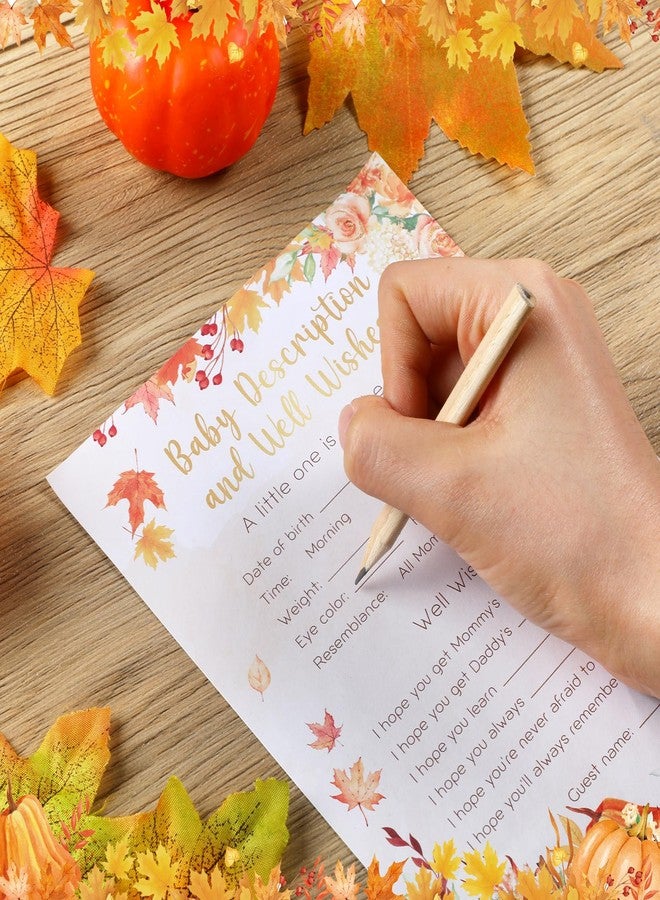 Baby Description
and Well Wishe
A little one is
Date of birth
Time: Morning
Weight:
Eye color:
Resemblance: All Mom
Well Wis
I hope you get Mommy's
I hope you get Daddy's
I hope you learn
I hope you always
I hope you're never afraid to
I hope you'll always remember
Guest name: